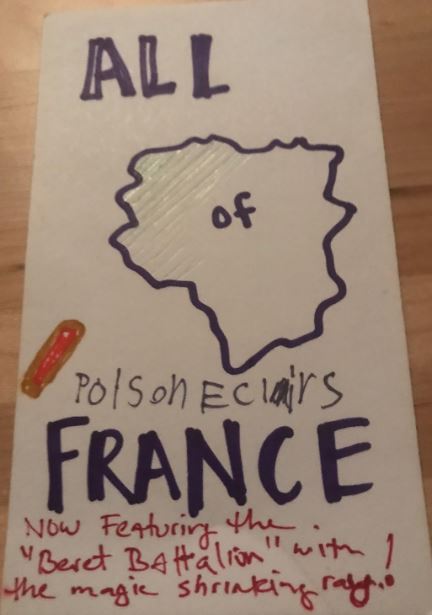 ALL
of
Poison Eclairs
FRANCE
Now Featuring the
"Beret BAttalion" with
the magic shrinking ray!